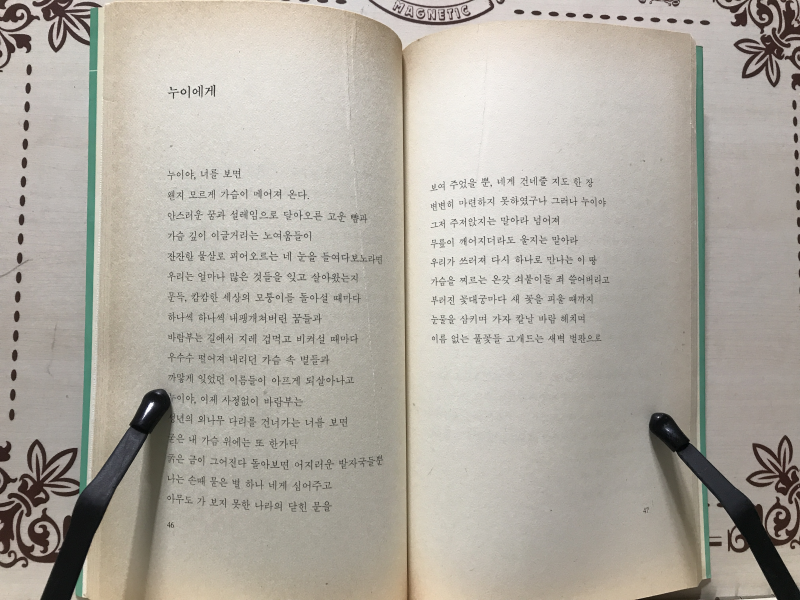 MAGNETIC
누이에게
누이야, 너를 보면
왠지 모르게 가슴이 메어져 온다.
안스러운 꿈과 설레임으로 달아오른 고운 뺨과
가슴 깊이 이글거리는 노여움들이
잔잔한 물살로 피어오르는 네 눈을 들여다보노라면
우리는 얼마나 많은 것들을 잊고 살아왔는지
문득, 캄캄한 세상의 모퉁이를 돌아설 때마다
하나씩 하나씩 내팽개쳐버린 꿈들과
바람부는 길에서 지레 겁먹고 비켜설 때마다
우수수 떨어져 내리던 가슴 속 별들과
까맣게 잊었던 이름들이 아프게 되살아나고
누이야, 이제 사정없이 바람부는
외나무 다리를 건너가는 너를 보면
내 가슴 위에는 또 한가닥
굵은 금이 그어진다 돌아보면 어지러운 발자국들뿐
나는 손때 묻은 별 하나 네게 심어주고
아무도 가 보지 못한 나라의 닫힌 문을
46
보여 주었을 뿐, 네게 건네줄 지도 한 장
변변히 마련하지 못하였구나 그러나 누이야
그저 주저앉지는 말아라 넘어져
무릎이 깨어지더라도 울지는 말아라
우리가 쓰러져 다시 하나로 만나는 이 땅
가슴을 찌르는 온갖 쇠붙이들 죄 쓸어버리고
부러진 꽃대궁마다 새 꽃을 피울 때까지
눈물을 삼키며 가자 칼날 바람 헤치며
이름 없는 풀꽃들 고개드는 새벽 벌판으로
47